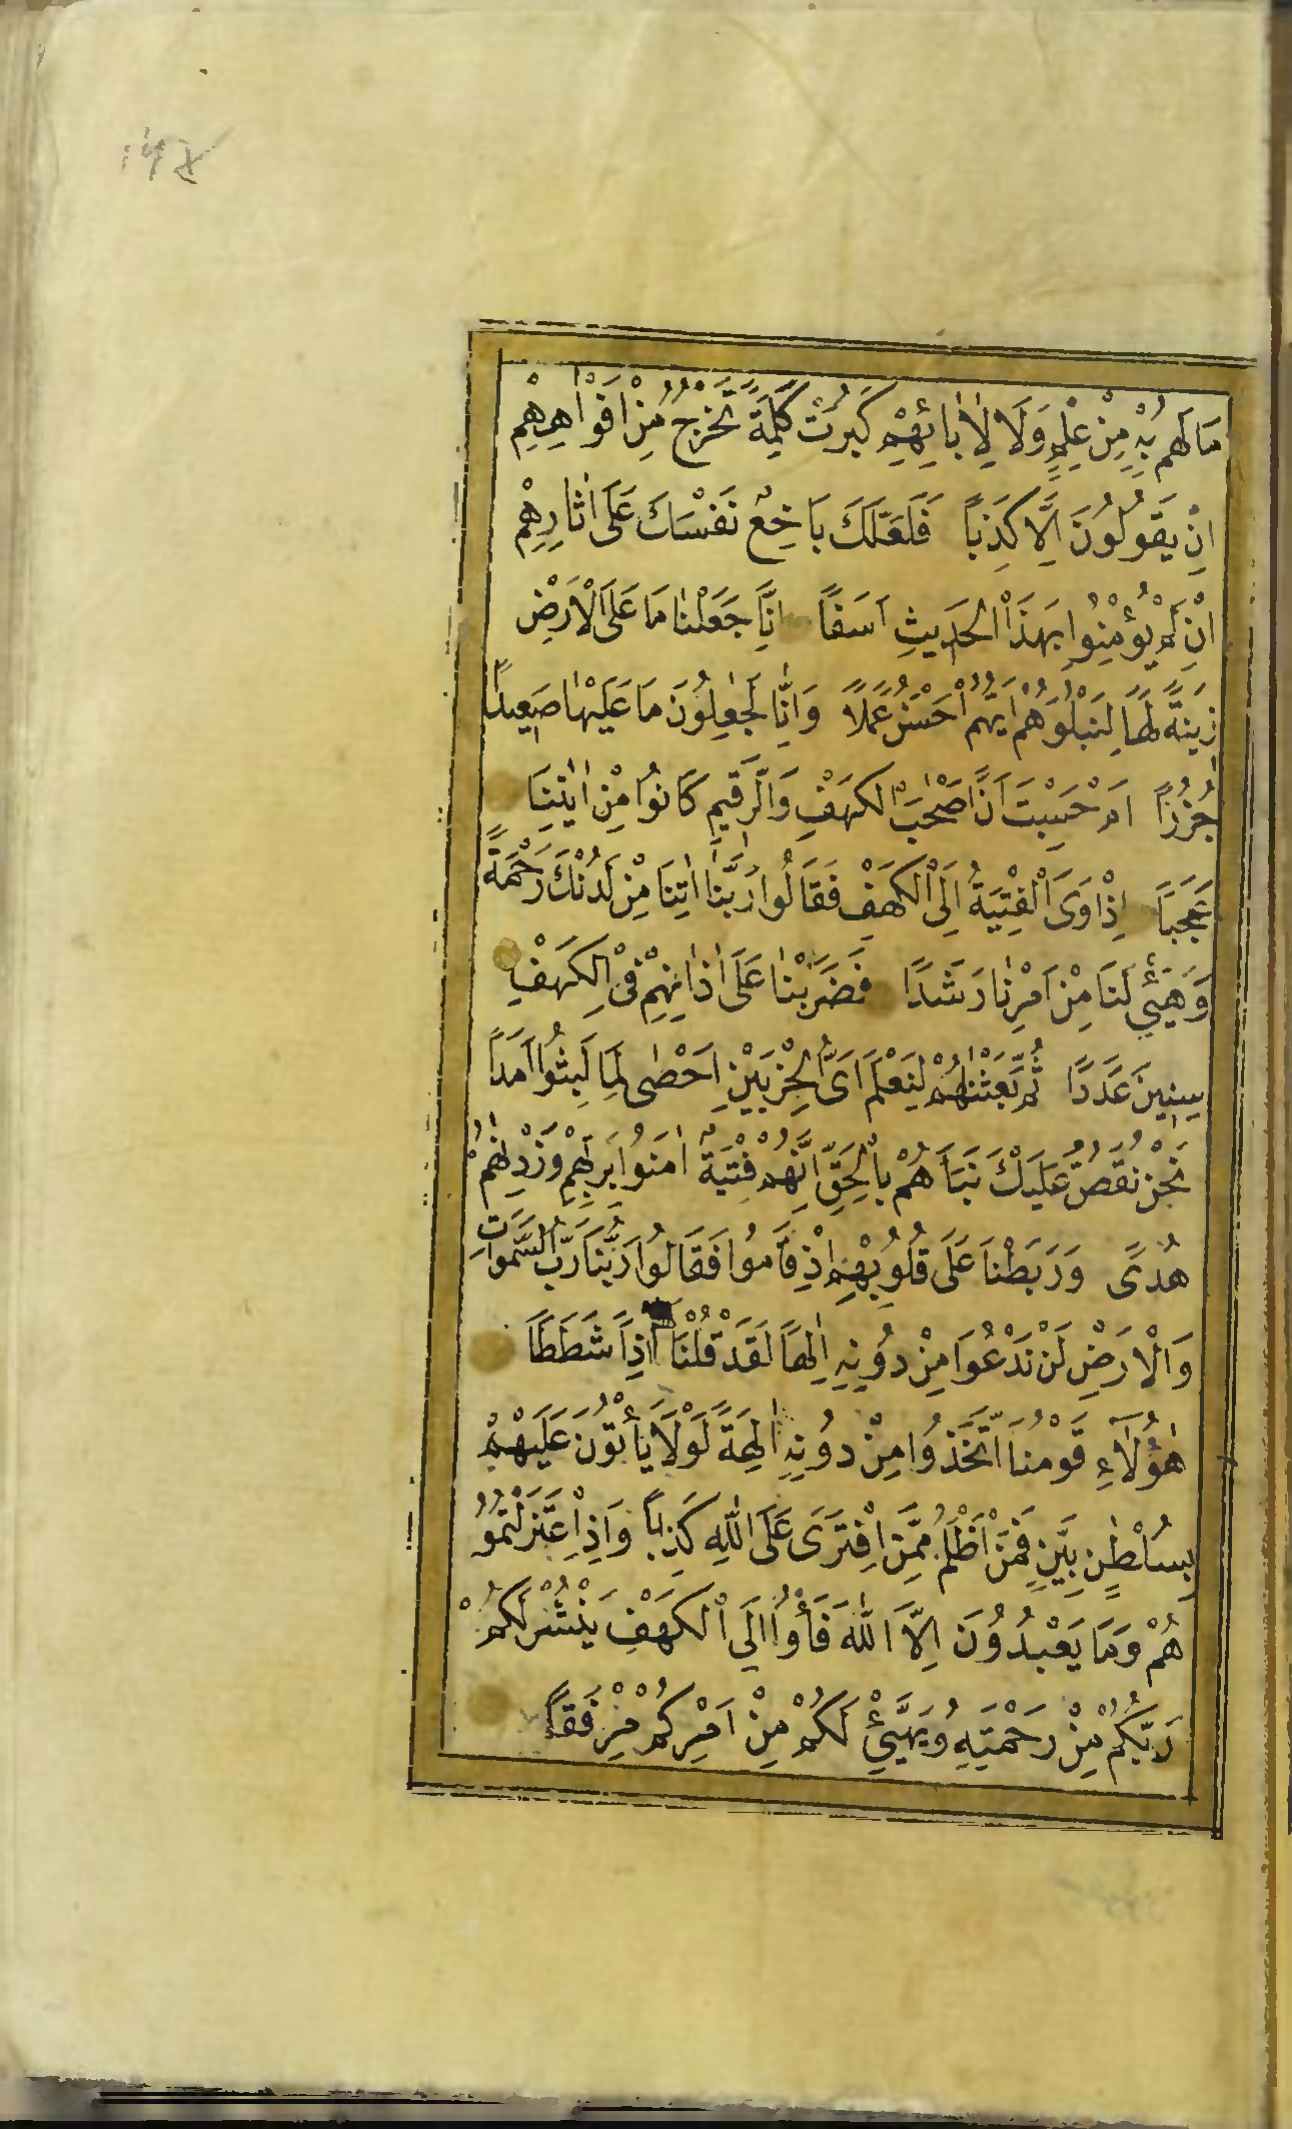 مَا لَهُمْ بِهِ مِنْ عِلْمٍ وَلَا لِاٰبَائِهِمْ كَبُرَتْ كَلِمَةً تَخْرُجُ مِنْ اَفْوَاهِهِمْ
اِنْ يَقُولُونَ اِلَّا كَذِبًا فَلَعَلَّكَ بَاخِعٌ نَفْسَكَ عَلَى اٰثَارِهِمْ
اِنْ لَمْ يُؤْمِنُوا بِهَذَا الْحَدِيثِ اَسَفًا اِنَّا جَعَلْنَا مَا عَلَى الْاَرْضِ
زِينَةً لَهَا لِنَبْلُوَهُمْ اَيُّهُمْ اَحْسَنُ عَمَلًا وَاِنَّا لَجٰعِلُونَ مَا عَلَيْهَا صَعِيدًا
جُرُزًا اَمْ حَسِبْتَ اَنَّ اَصْحٰبَ الْكَهْفِ وَالرَّقِيمِ كَانُوا مِنْ اٰيٰتِنَا
عَجَبًا اِذْ اَوَى الْفِتْيَةُ اِلَى الْكَهْفِ فَقَالُوا رَبَّنَا اٰتِنَا مِنْ لَدُنْكَ رَحْمَةً
وَهَيِّئْ لَنَا مِنْ اَمْرِنَا رَشَدًا فَضَرَبْنَا عَلَى اٰذَانِهِمْ فِى الْكَهْفِ
سِنِينَ عَدَدًا ثُمَّ بَعَثْنٰهُمْ لِنَعْلَمَ اَىُّ الْحِزْبَيْنِ اَحْصٰى لِمَا لَبِثُوا اَمَدًا
نَحْنُ نَقُصُّ عَلَيْكَ نَبَاَهُمْ بِالْحَقِّ اِنَّهُمْ فِتْيَةٌ اٰمَنُوا بِرَبِّهِمْ وَزِدْنٰهُمْ
هُدًى وَرَبَطْنَا عَلَى قُلُوبِهِمْ اِذْ قَامُوا فَقَالُوا رَبُّنَا رَبُّ السَّمٰوَاتِ
وَالْاَرْضِ لَنْ نَدْعُوَا مِنْ دُونِهِ اِلٰهًا لَقَدْ قُلْنَا اِذًا شَطَطًا
هٰؤُلَاءِ قَوْمُنَا اتَّخَذُوا مِنْ دُونِهِ اٰلِهَةً لَوْلَا يَأْتُونَ عَلَيْهِمْ
بِسُلْطٰنٍ بَيِّنٍ فَمَنْ اَظْلَمُ مِمَّنِ افْتَرَى عَلَى اللّٰهِ كَذِبًا وَاِذِ اعْتَزَلْتُمُو
هُمْ وَمَا يَعْبُدُونَ اِلَّا اللّٰهَ فَأْوُا اِلَى الْكَهْفِ يَنْشُرْ لَكُمْ
رَبُّكُمْ مِنْ رَحْمَتِهِ وَيُهَيِّئْ لَكُمْ مِنْ اَمْرِكُمْ مِرْفَقًا